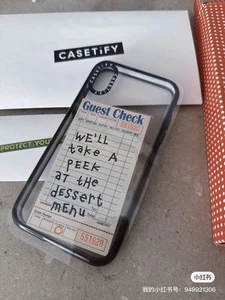 CASETiFY
CASETiFY
Guest Check
591820
WE'LL
take A
PEEK
AT tHE
dESSERT
mENU
591820
PROTECT YOUR
小红书
我的小红书号：949921306